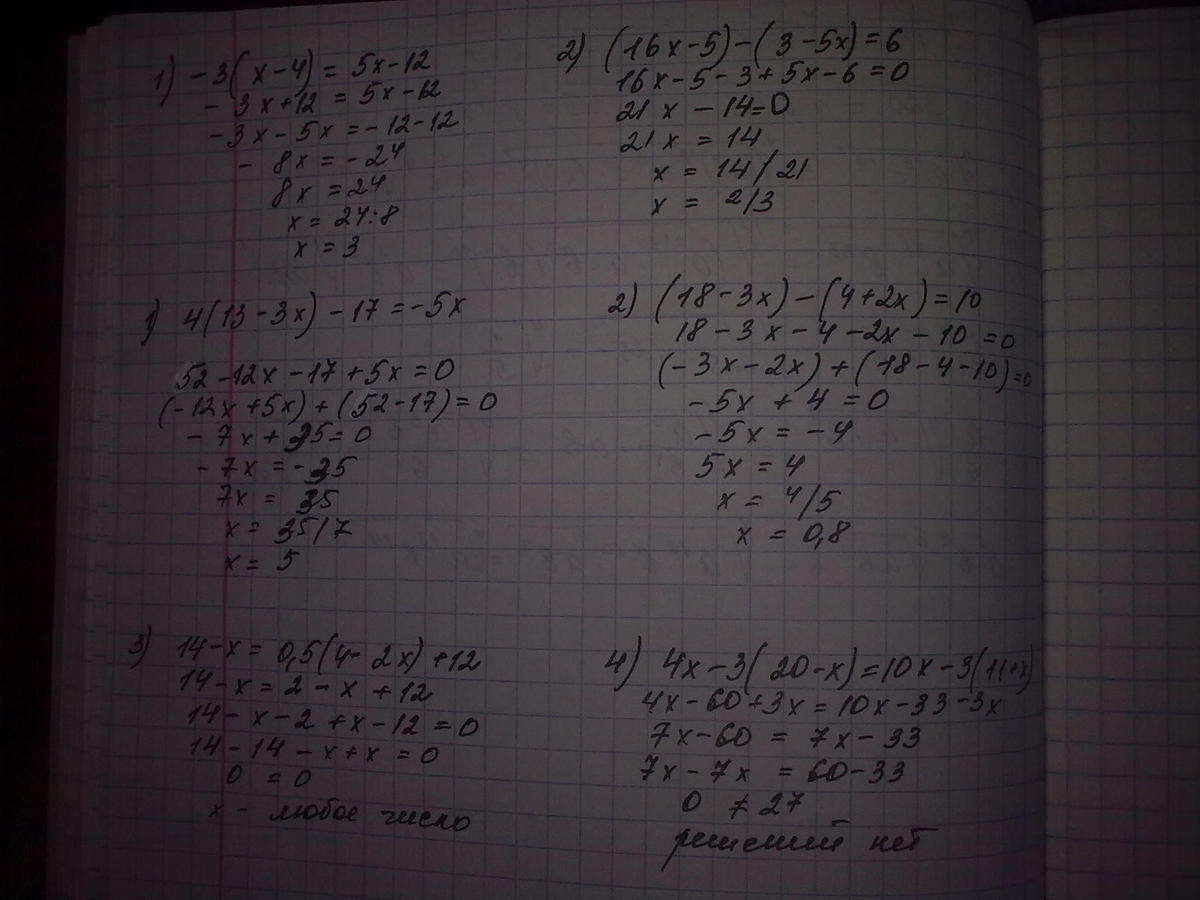 1) -3(x-4) = 5x-12
-3x+12 = 5x-12
-3x-5x = -12-12
-8x = -24
8x = 24
x = 24:8
x = 3
2) (16x-5)-(3-5x)=6
16x-5-3+5x-6=0
21x-14=0
21x = 14
x = 14/21
x = 2/3
1) 4(13-3x)-17=-5x
52-12x-17+5x=0
(-12x+5x)+(52-17)=0
-7x+35=0
-7x=-35
7x= 35
x= 35/7
x= 5
2) (18-3x)-(4+2x)=10
18-3x-4-2x-10=0
(-3x-2x)+(18-4-10)=0
-5x+4=0
-5x=-4
5x=4
x=4/5
x=0,8
3) 14-x=0,5(4-2x)+12
14-x=2-x+12
14-x-2+x-12=0
14-14-x+x=0
0=0
x- любое число
4) 4x-3(20-x)=10x-3(11+x)
4x-60+3x=10x-33-3x
7x-60=7x-33
7x-7x=60-33
0≠27
решений нет